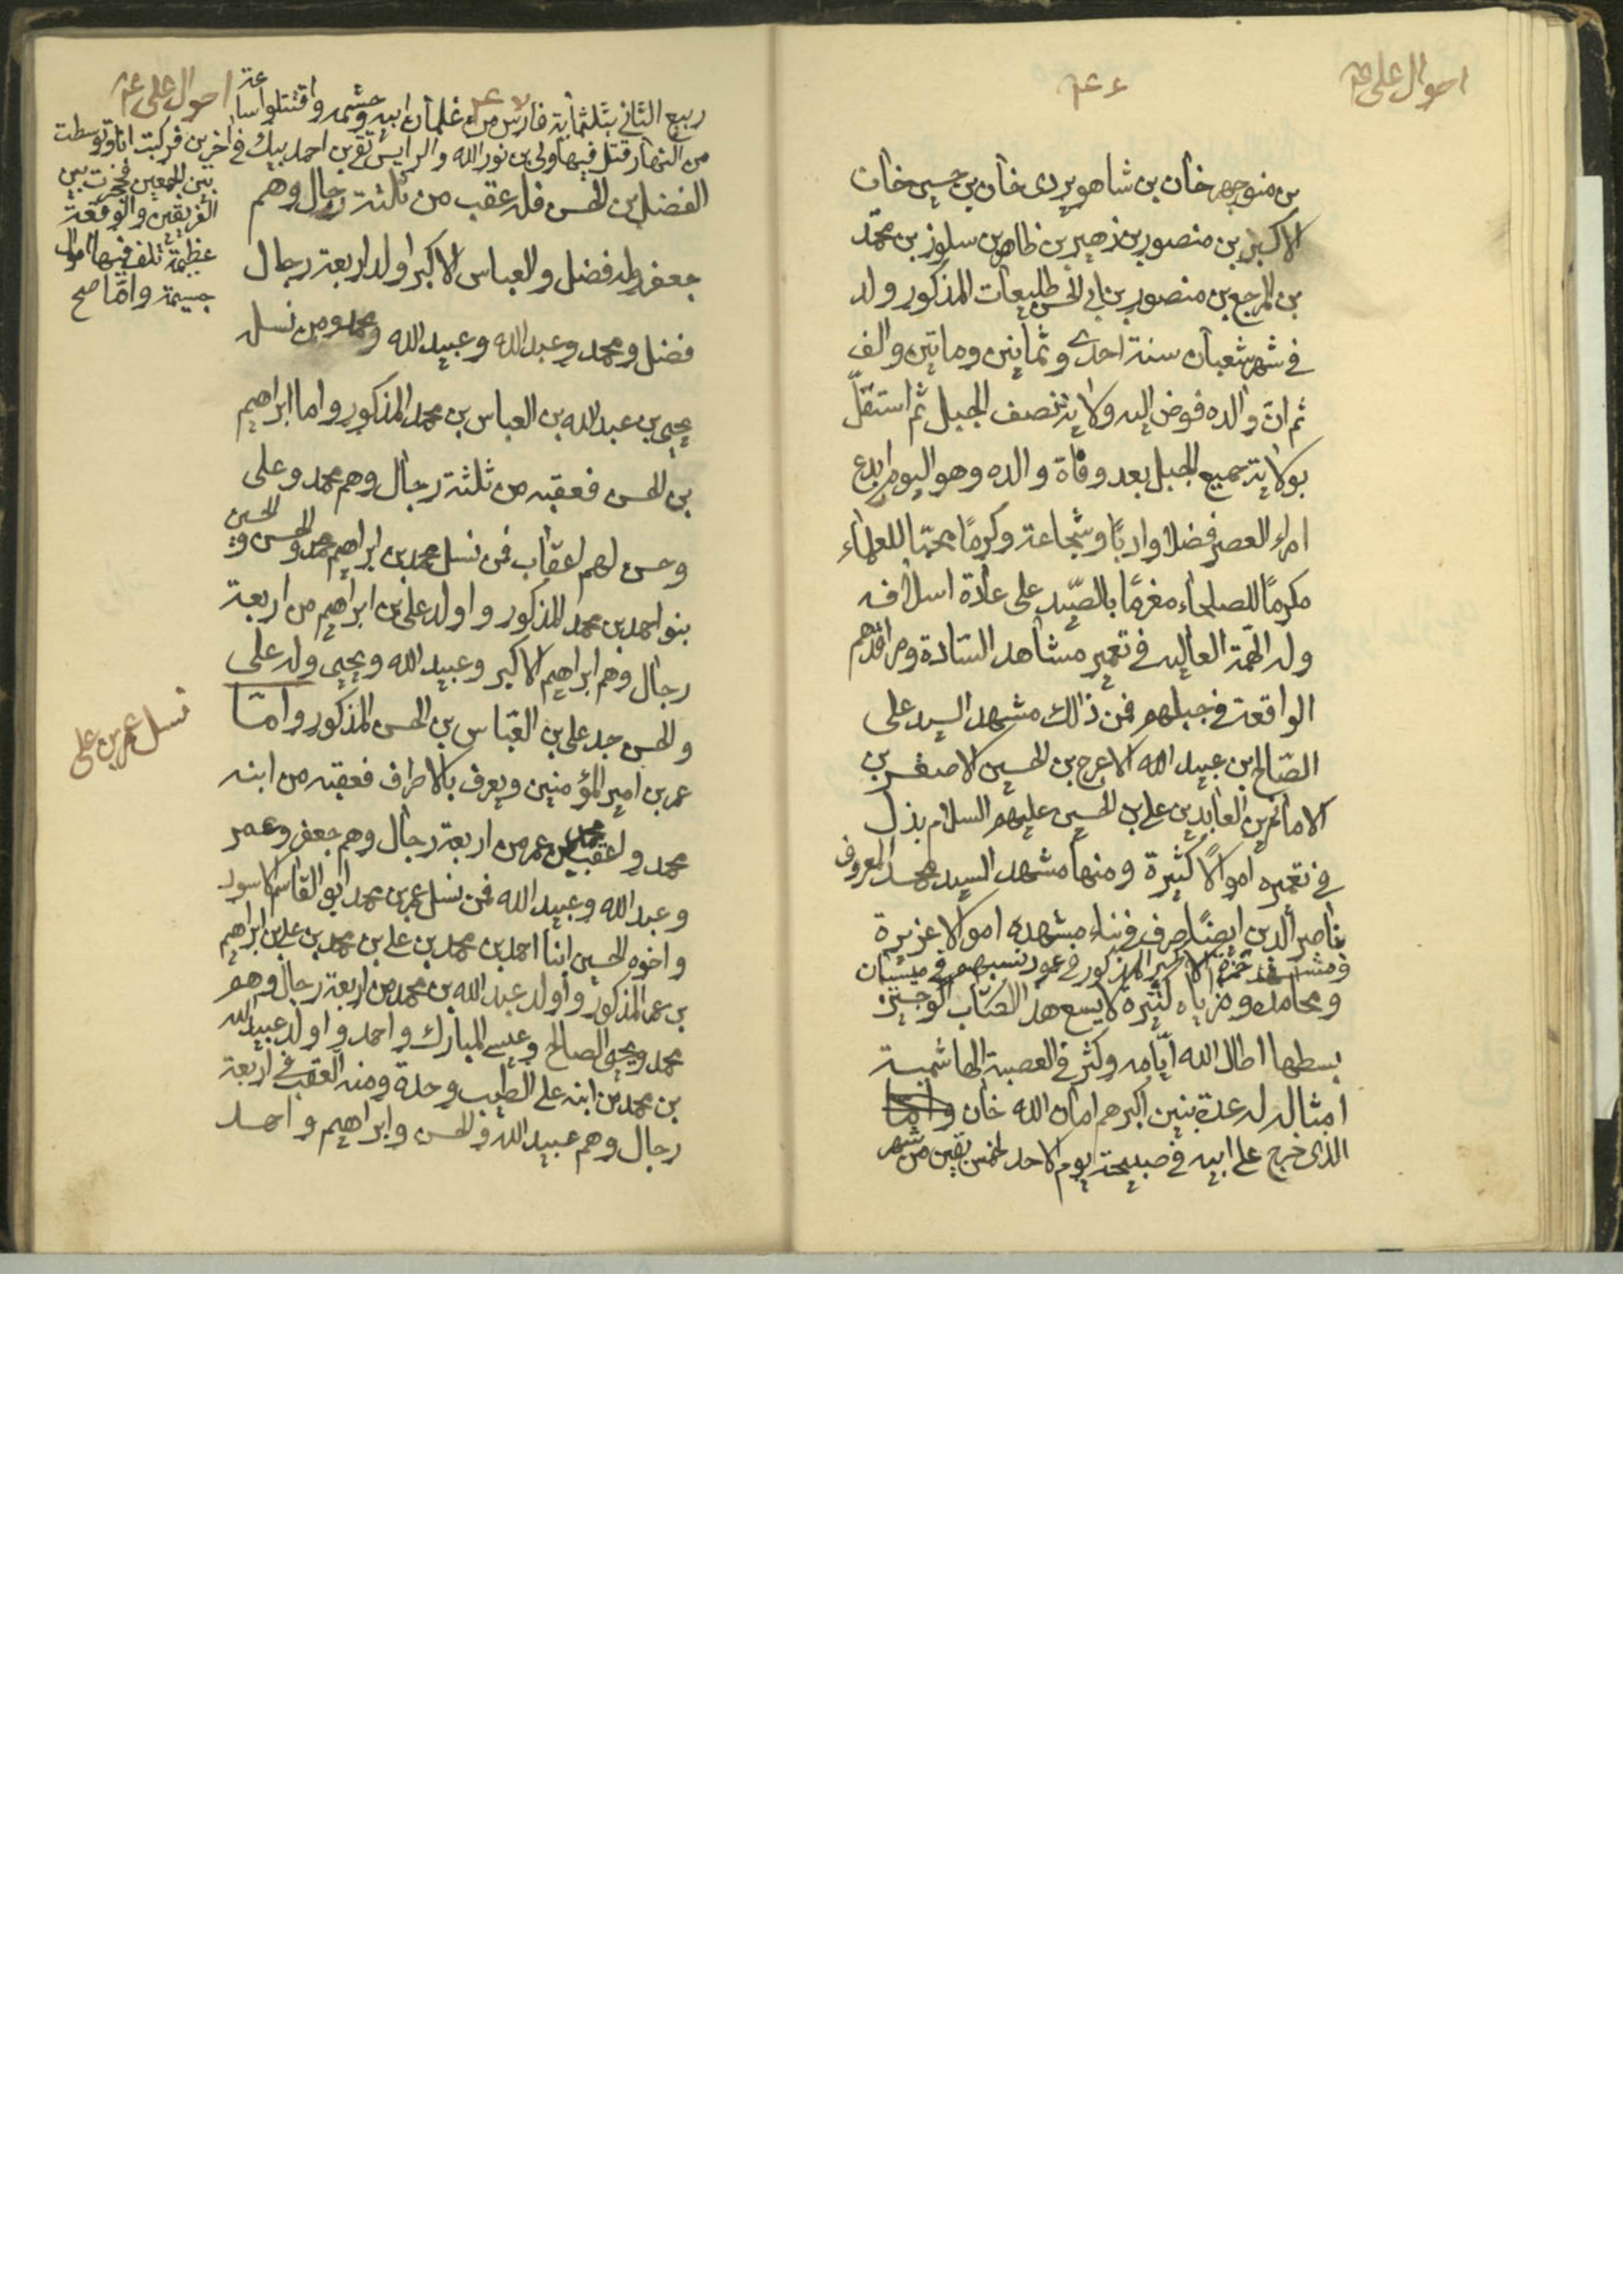 احوال على ع
بن منوجهر خان بن شاهويردى خان بن حسين خان
الاكبر بن منصور بن زهير بن ظاهر بن سلوز بن محمد
بن المرجع بن منصور بن ابى الحسن طليعات المذكور ولد
فى شهر شعبان سنة احدى وثمانين وماتين والف
ثم ان والده فوض اليه ولاية نصف الجبل ثم استقل
بولاية جميع الجبل بعد وفاة والده وهو اليوم ابدع
امراء العصر فضلا وادبًا وشجاعة وكرمًا محبّا للعلماء
مكرمًا للصلحاء مغرمًا بالصّيد على عادة اسلافه
وله الهمّة العاليه فى تعمير مشاهد السّادة ومراقدهم
الواقعة فى جبلهم فمن ذالك مشهد السيد على
الصّالح بن عبيد الله الاعرج بن الحسين الاصغر بن
الامام زين العابدين على بن الحسين عليهم السلام بذل
فى تعميره اموالًا كثيرة ومنها مشهد السيد محمد المعروف
بناصر الدين ايضًا صرف فى بناء مشهده اموالا عزيزة
ومشهد حمزة الاكبر المذكور فى عمود نسبهم فى ميسان
ومحامده ومزاياه كثيرة لا يسع هذا الكتاب الوجيزة
بسطها اطال الله ايّامه وكثر فى العصبة الهاشمية
امثاله له عدة بنين اكبرهم امان الله خان واما
الذى خرج على ابيه فى صبيحة يوم الاحد لخمس بقين من شهر
احوال على ع
ربيع الثانى بثلثمأية فارس من غلمان ابيه وحشمه واقتتلوا ساعة
من النهار قتل فيها ولى بن نور الله والرايس تقى بن احمد بيك فى اخرين فركبت انا وتوسطت
بين الجمعين فحجزت بين
الفريقين والوقعة
عظيمة تلف فيها اموال
جسيمة وامّا صح
الفضل بن الحسن فله عقب من ثلثة رجال وهم
جعفر وله فضل والعباس الاكبر اولد اربعة رجال
فضل ومحمد وعبد الله وعبيد الله ومحمد ومن نسل
يحيى بن عبد الله بن العباس بن محمد المذكور واما ابراهيم
بن الحسن فعقبه من ثلثة رجال وهم محمد وعلى
وحسن لهم اعقاب فمن نسل محمد بن ابراهيم محمد والحسن والحسين
بنو احمد بن محمد المذكور واولد على بن ابراهيم من اربعة
رجال وهم ابراهيم الاكبر وعبيد الله ويحيى وله على
والحسن جد على بن العبّاس بن الحسن المذكور وامّا
نسل عمر بن على
عمر بن امير المؤمنين ويعرف بالاطراف فعقبه من ابنه
محمد واعقب محمد بن عمر من اربعة رجال وهم جعفر وعمر
وعبد الله وعبيد الله فمن نسل عمر بن محمد ابو القاسم الاسود
واخوه الحسين ابنا احمد بن محمد بن على بن محمد بن على بن ابراهيم
بن عمر المذكور واولد عبد الله بن محمد من اربعة رجال وهم
محمد ويحيى الصالح وعيسى المبارك واحمد واولد عبيد الله
بن محمد من ابنه على الطيب وحدة ومنه العقب فى اربعة
رجال وهم عبيد الله والحسن وابراهيم واحمد